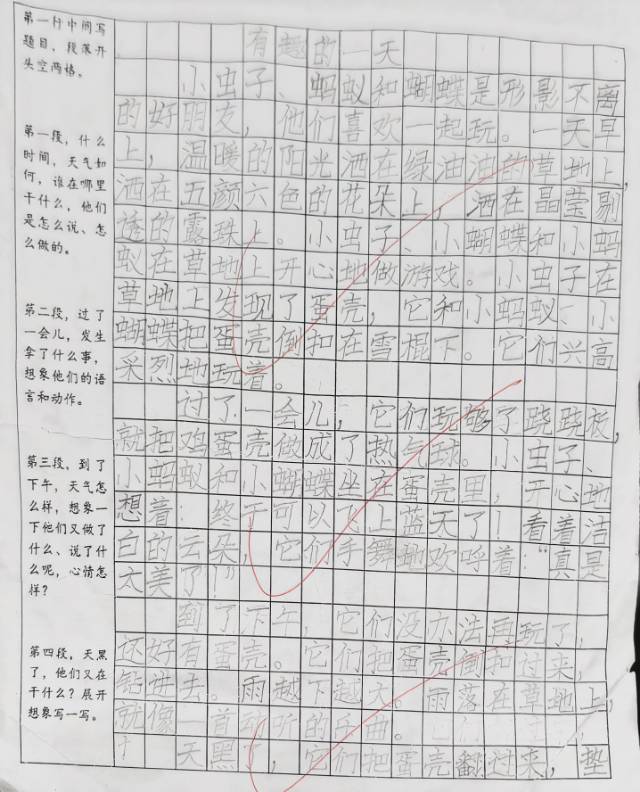 第一行中间写
题目，段落开
头空两格。
第一段，什么
时间，天气如
何，谁在哪里
干什么，他们
是怎么说、怎
么做的。
第二段，过了
一会儿，发生
拿了什么事，
想象他们的语
言和动作。
第三段，到了
下午，天气怎
么样，想象一
下他们又做了
什么、说了什
么呢，心情怎
样？
第四段，天黑
了，他们又在
干什么？展开
想象写一写。
有趣的一天
小虫子、蚂蚁和蝴蝶是形影不离
的好朋友，他们喜欢一起玩。一天早
上，温暖的阳光洒在绿油油的草地上，
洒在五颜六色的花朵上，洒在晶莹剔
透的露珠上。小虫子、小蝴蝶和小蚂
蚁在草地上开心地做游戏。小虫子在
草地上发现了蛋壳，它和小蚂蚁、小
蝴蝶把蛋壳倒扣在雪棍下。它们兴高
采烈地玩着。
过了一会儿，它们玩够了跷跷板，
就把鸡蛋壳做成了热气球。小虫子、
小蚂蚁和小蝴蝶坐在蛋壳里，开心地
想着：终于可以飞上蓝天了！看着洁
白的云朵，它们手舞地欢呼着：“真是
太美了！”
到了下午，它们没办法再玩了，
还好有蛋壳。它们把蛋壳倒扣过来，
钻进去。雨越下越大。雨落在草地上，
就像一首动听的乐曲。
天黑了，它们把蛋壳翻过来，垫